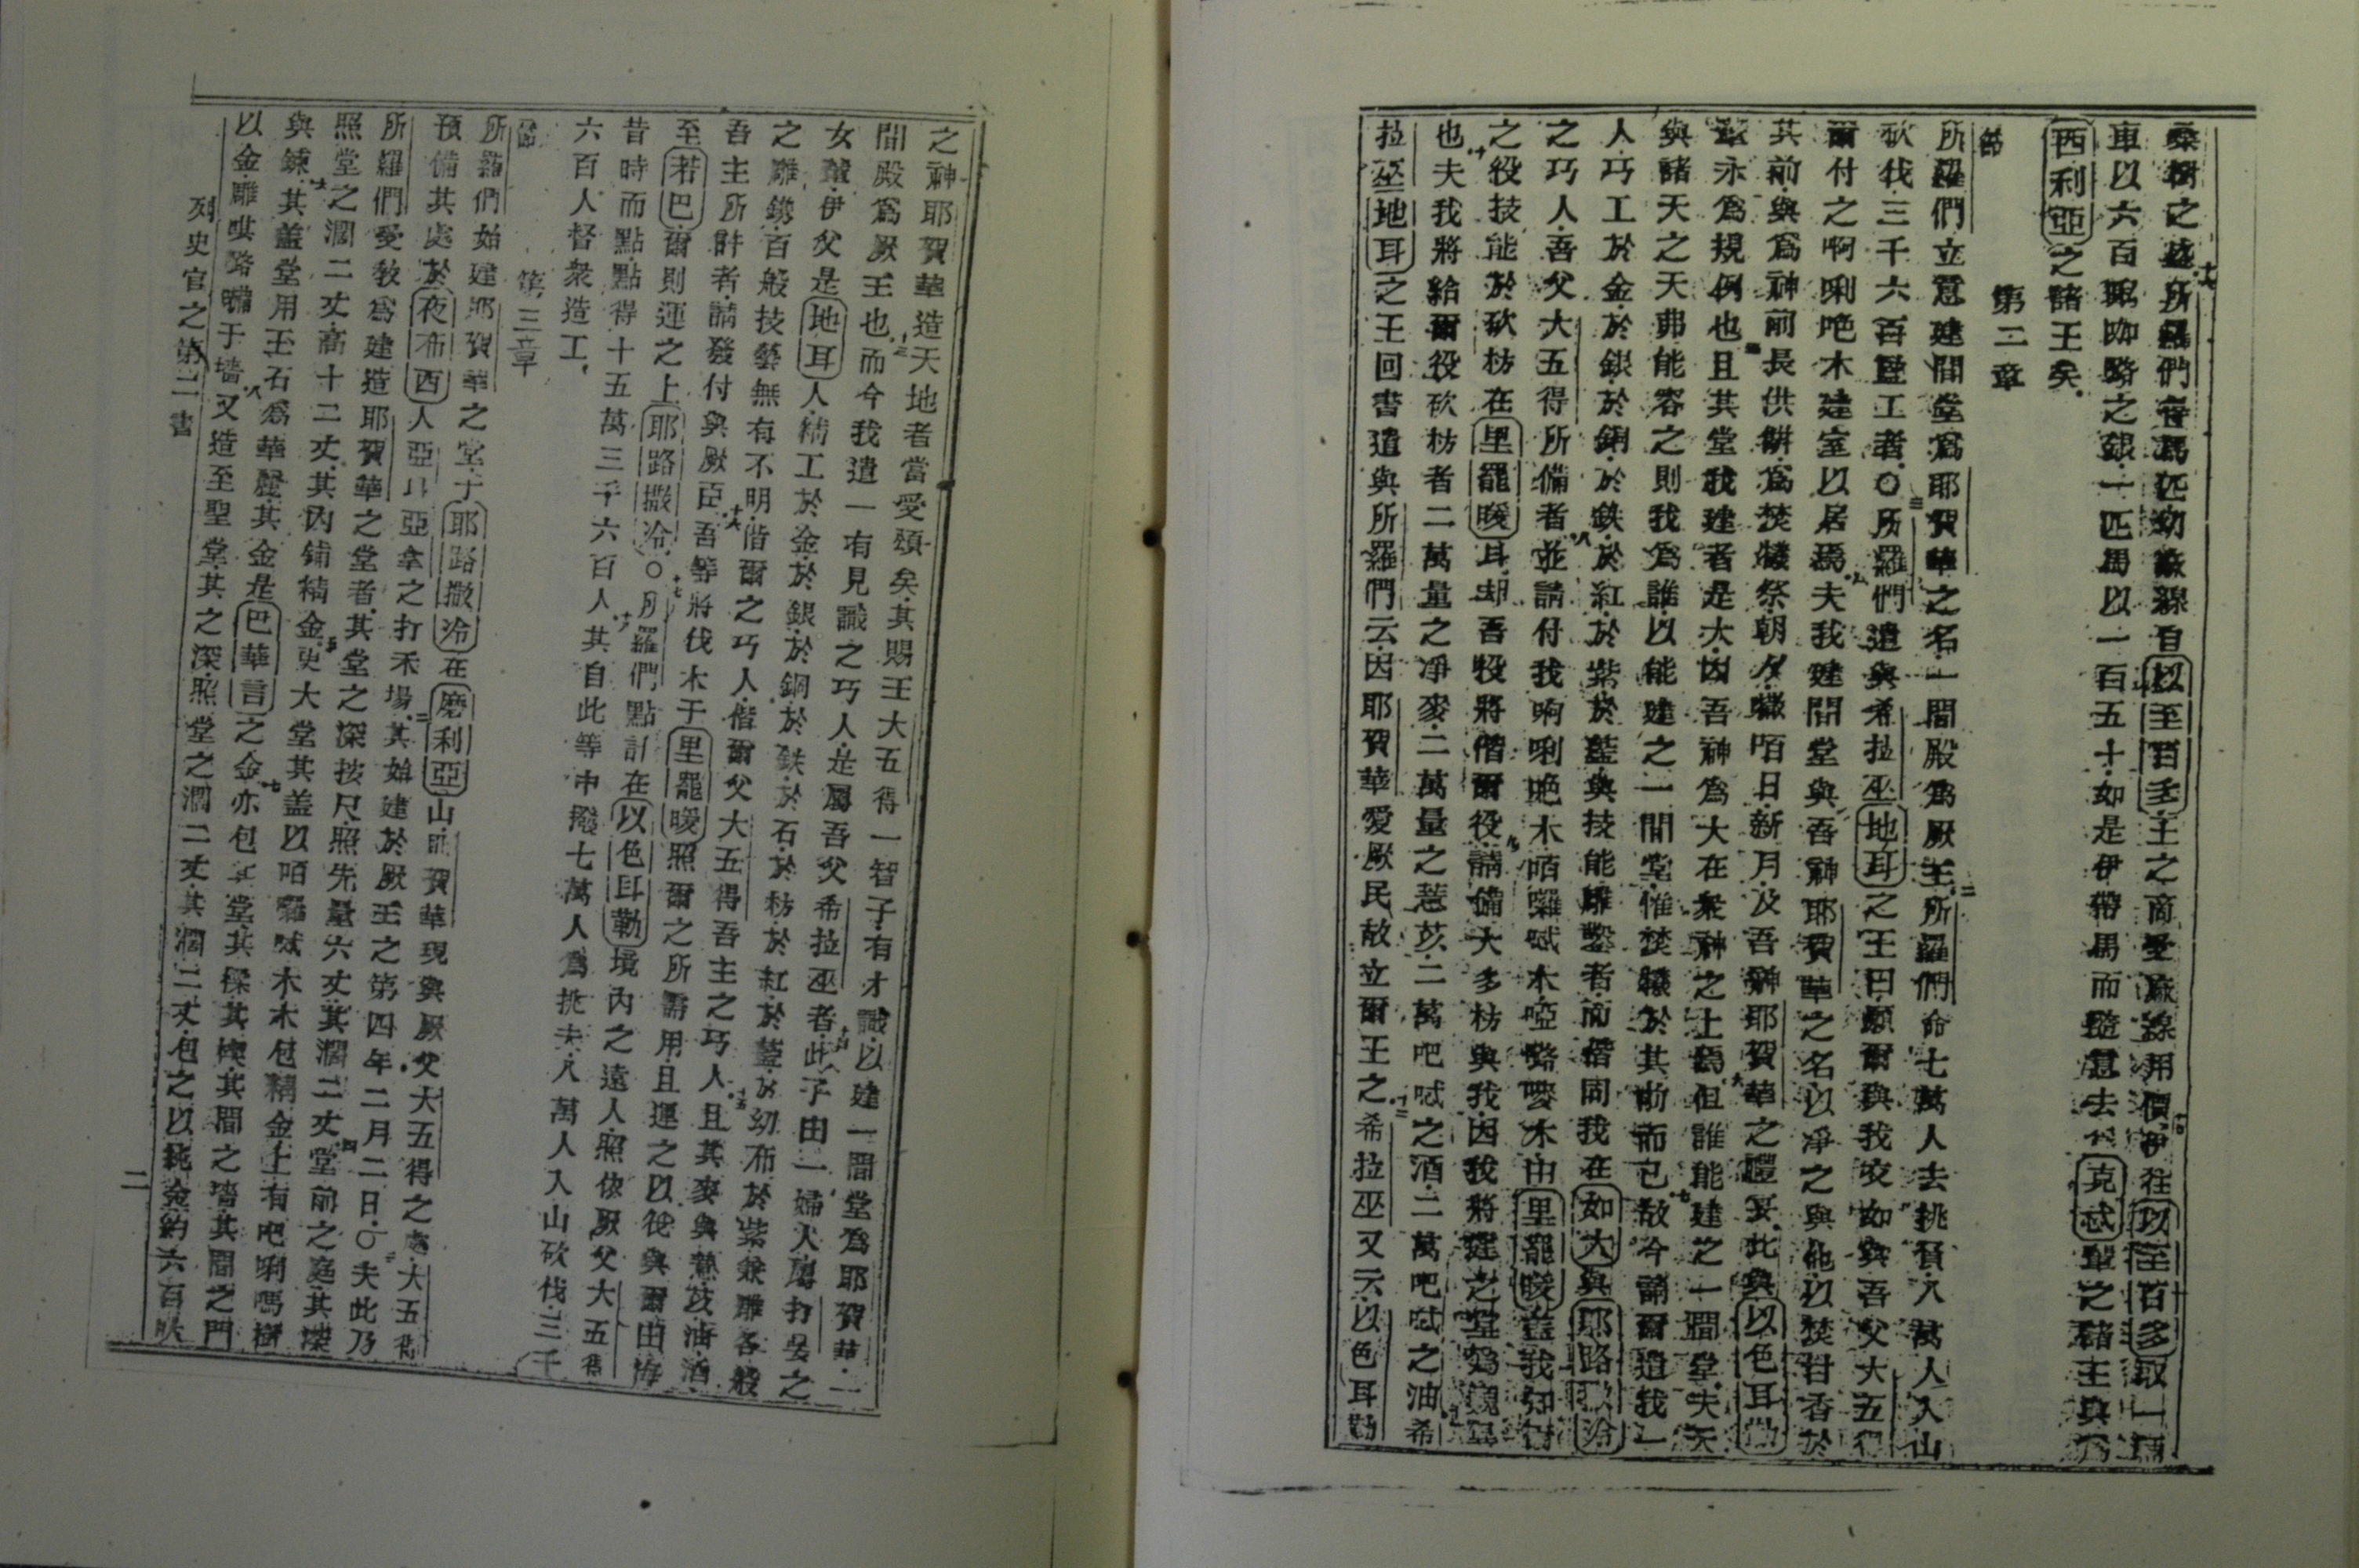 桑樹之盛十六所羅們有馬匹幼蔴線自以至百多主之商受蔴線用價十七伊往以至百多取一輛
車以六百曬咖路之銀一匹馬以一百五十如是伊帶馬而隨意去代克忒輩之諸王與爲
西利亞之諸王矣
第二章
節
所羅們立意建間堂爲耶賀華之名一間殿爲厥王二所羅們命七萬人去挑負八萬人入山
砍伐三千六百監工者〇三所羅們遣與希拉巫地耳之王曰願爾與我交如與吾父大五得
爾付之啊唎吔木建室以居焉四夫我建間堂與吾神耶賀華之名以凈之與他以焚甘香於
其前與爲神前長供餅爲焚犧祭朝夕曦咟日新月及吾神耶賀華之禮宴此與以色耳勒
輩永爲規例也五且其堂我建者是大因吾神爲大在衆神之上焉六但誰能建之一間堂夫天
與諸天之天弗能容之則我爲誰以能建之一間堂惟焚犧於其前而已七故今請爾遣我一
人巧工於金於銀於銅於鉄於紅於紫於藍與技能雕鏨者而偕同我在如大與耶路撒冷
之巧人吾父大五得所備者八並請付我啊唎吔木咟囉忒木啞路嘜木由里罷暖蓋我知爾
之役技能於砍枋在里罷暖耳却吾役將偕爾役九請備大多枋與我因我將建之堂爲
也十夫我將給爾役砍枋者二萬量之凈麥二萬量之薏苡二萬吧忒之酒二萬吧忒之油十一希
拉巫地耳之王回書遣與所羅們云因耶賀華愛厥民故立爾王之十二希拉巫又云以色耳勒
之神耶賀華造天地者當受頌矣其賜王大五得一智子有才識以建一間堂爲耶賀華一
間殿爲厥王也十三而今我遣一有見識之巧人是屬吾父希拉巫者十四此子由一婦人屬打晏之
女輩伊父是地耳人精工於金於銀於銅於鉄於石於枋於紅於藍於幼布於紫兼雕各般
之雕鐫百般技藝無有不明偕爾之巧人偕爾父大五得吾主之巧人十五且其麥與薏苡油酒
吾主所許者請發付與厥臣十六吾等將伐木于里罷暖照爾之所需用且運之以筏與爾由海
至若巴爾則運之上耶路撒冷〇十七所羅們點計在以色耳勒境内之遠人照依厥父大五得
昔時而點點得十五萬三千六百人十八其自此等中撥七萬人爲挑夫八萬人入山砍伐三千
六百人督衆造工
第三章
節
所羅們始建耶賀華之堂于耶路撒冷在磨利亞山耶賀華現與厥父大五得之處大五得
預備其處於夜布西人亞耳亞拿之打禾場二其始建於厥王之第四年二月二日〇三夫此乃
所羅們受敎爲建造耶賀華之堂者其堂之深按尺照先量六丈其濶二丈四堂前之庭其深
照堂之濶二丈高十二丈其内鋪精金五更大堂其蓋以咟囉忒木木包精金上有吧唎嗎樹
與鍊六其蓋堂用玉石爲華麗其金是巴華言之金七亦包其堂其樑其楔其間之墻其間之門
以金雕㖿咯㘄于墻八又造至聖堂其之深照堂之濶二丈其濶二丈包之以純金約六百
列史官之第二書
二